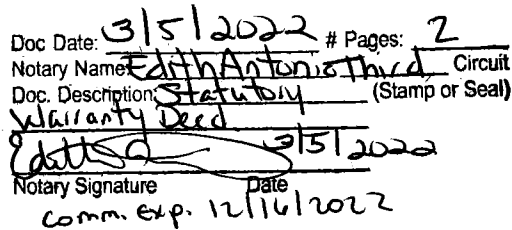 Doc Date: 3/5/2022 # Pages: 2
Notary Name: Edith Antonio Third Circuit
Doc. Description: Statutory (Stamp or Seal)
Warranty Deed
3/5/2022
Notary Signature Date
Comm. Exp. 12/16/2022